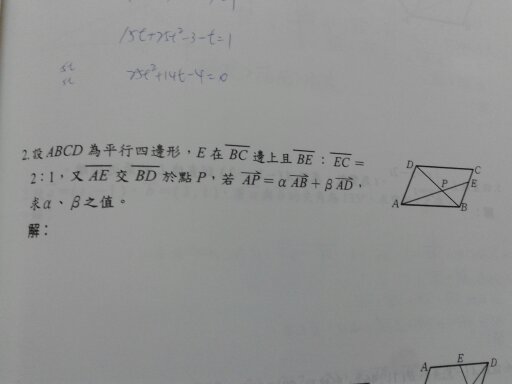 15t+25t²-3-t=1
5t
5t
25t²+14t-4=0
2.設ABCD為平行四邊形，E在BC邊上且BE：EC=
2：1，又AE交BD於點P，若AP=αAB+βAD，
求α、β之值。
解：
D
C
P
E
A
B
A
E
D